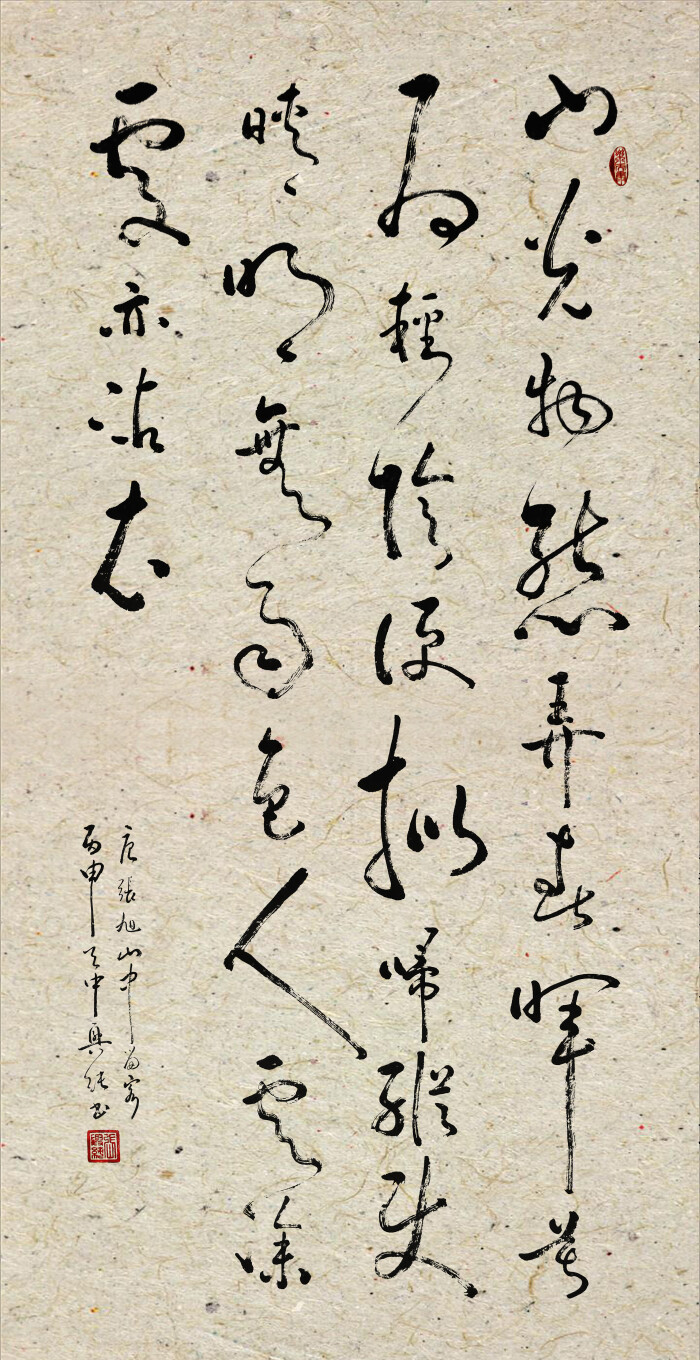 山光物態弄春暉莫
為輕陰便擬歸縱使
晴明無雨色入雲深
處亦沾衣
唐張旭山中留客
丙申天中興书